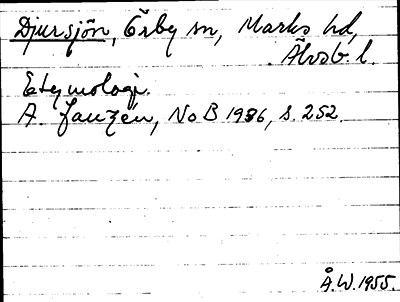 Djursjön, Örby sn, Marks hd,
Älvsb. l.
Etymologi.
A. Janzén, NoB 1936, s. 252.
Å.W. 1955.